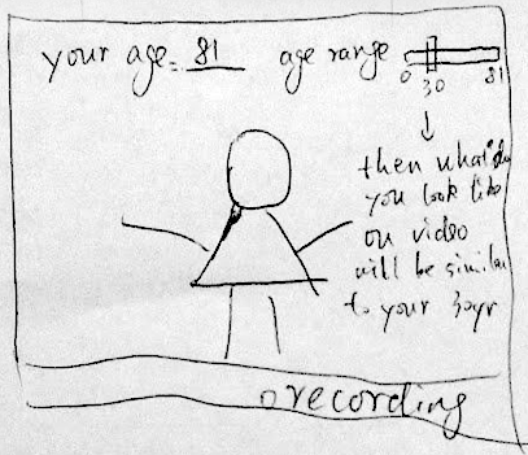 your age = 81 age range
0 30 81
then what do
you look like
on video
will be similar
to your 30yr
recording